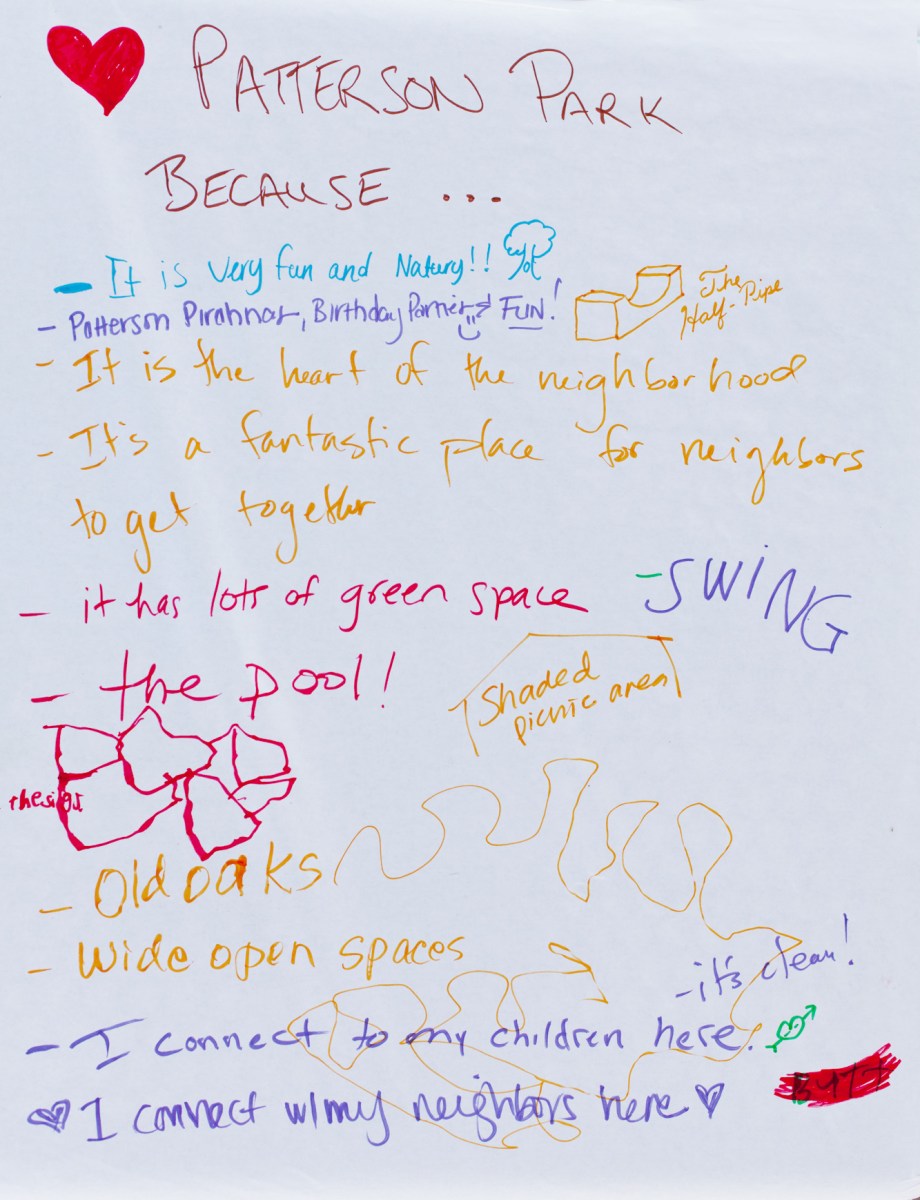 PATTERSON PARK
BECAUSE ...
- It is very fun and Natury!!
- Patterson Pirahnas, Birthday Parties & FUN!
The Half-Pipe
- It is the heart of the neighborhood
- It's a fantastic place for neighbors
to get together
- it has lots of green space
- SWING
- the pool!
Shaded
picnic area
- Old oaks
- Wide open spaces
- it's clean!
- I connect to my children here.
I connect w/my neighbors here